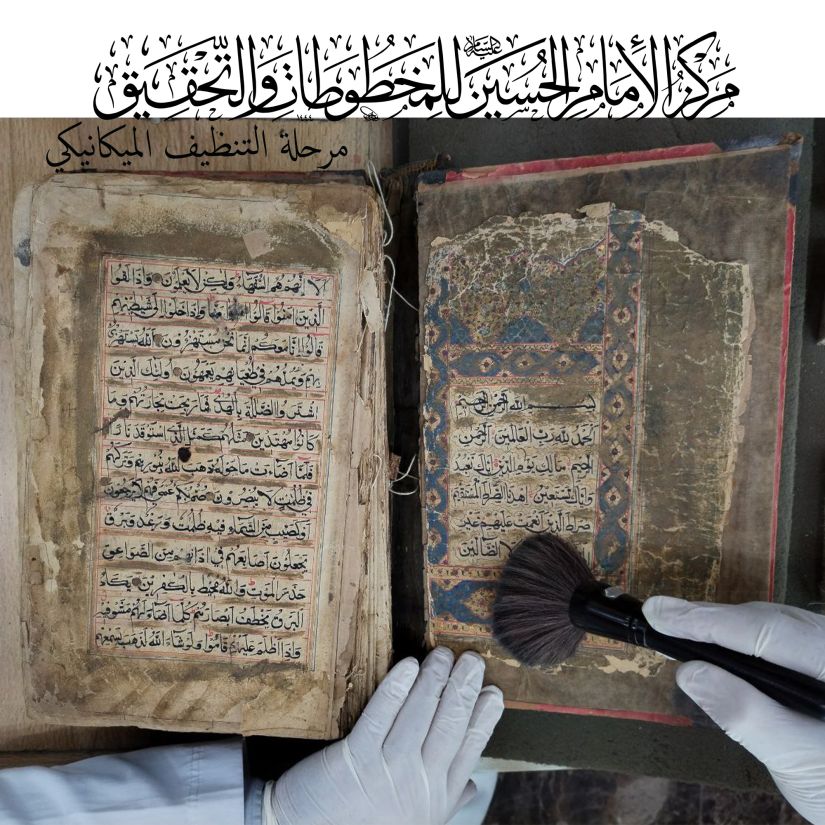 مركز الإمام الحسين عليه السلام للمخطوطات والتحقيق
مرحلة التنظيف الميكانيكي
بسم الله الرحمن الرحيم
الحمد لله رب العالمين الرحمن
الرحيم مالك يوم الدين اياك نعبد
واياك نستعين اهدنا الصراط المستقيم
صراط الذين انعمت عليهم غير
لا الضالين
لا انهم هم السفهاء ولكن لا يعلمون واذا لقوا
الذين امنوا قالوا امنا واذا خلوا الى شيطينهم
قالوا انا معكم انما نحن مستهزؤن الله يستهزئ
بهم ويمدهم في طغيانهم يعمهون اولئك الذين
اشتروا الضلالة بالهدى فما ربحت تجارتهم وما
كانوا مهتدين مثلهم كمثل الذى استوقد نارا
فلما اضاءت ما حوله ذهب الله بنورهم وتركهم
في ظلمت لا يبصرون صم بكم عمى فهم لا يرجعون
او كصيب من السماء فيه ظلمت ورعد وبرق
يجعلون اصابعهم في اذانهم من الصواعق
حذر الموت والله محيط بالكفرين يكاد
البرق يخطف ابصارهم كلما اضاء لهم مشوا فيه
واذا اظلم عليهم قاموا ولو شاء الله لذهب بسمعهم